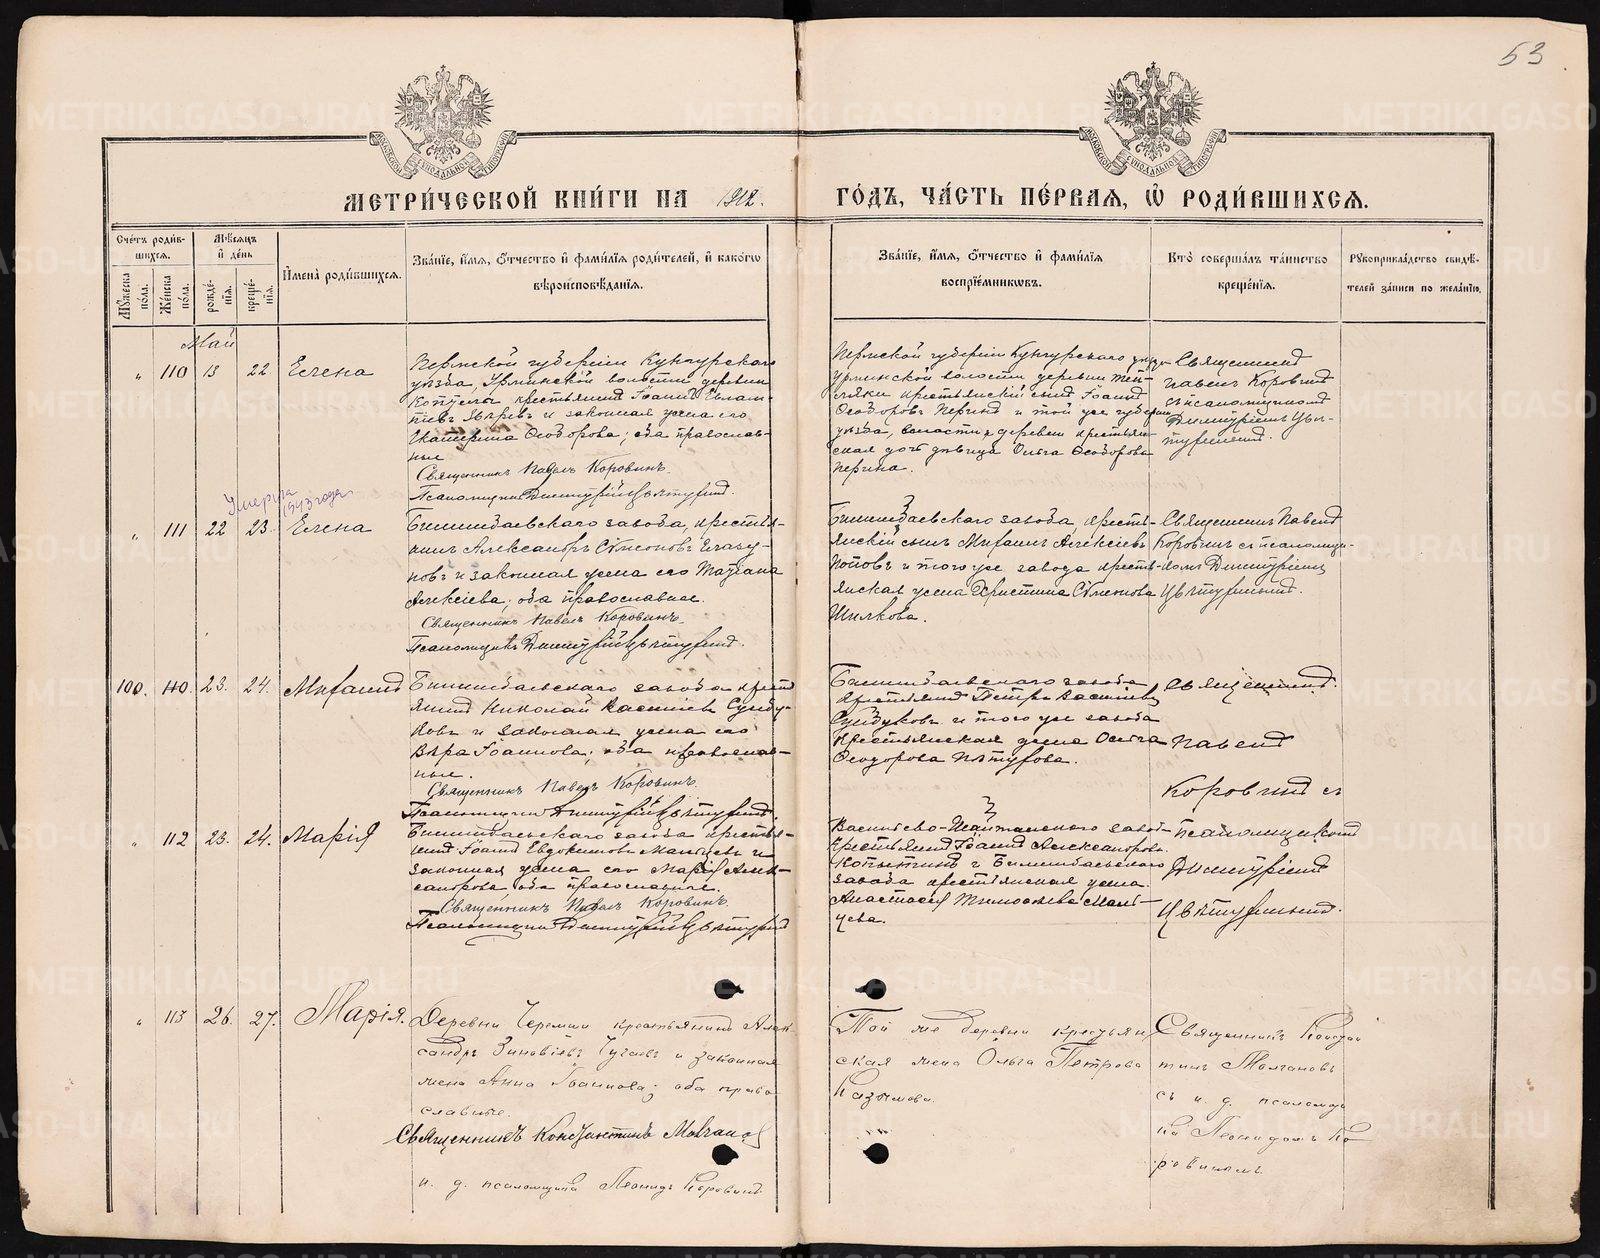 53
МЕТРИ́ЧЕСКОЙ КНИ́ГИ НА 1912.
ГО́ДЪ, ЧА́СТЬ ПЕ́РВАЯ, Ѡ҆ РОДИ́ВШИХСѦ.
Сче́тъ роди́вшихсѧ.
Мѣ́сѧцъ и҆ де́нь
Мꙋ́жеска по́ла.
Же́нска по́ла.
рожде́нїѧ.
креще́нїѧ.
И҆мена̀ роди́вшихсѧ.
Зва́нїе, и҆́мѧ, ѻ҆́тчество и҆ фами́лїѧ роди́телей, и҆ како́гѡ
вѣроисповѣ́данїѧ.
Зва́нїе, и҆́мѧ, ѻ҆́тчество и҆ фами́лїѧ
воспрїе́мникѡвъ.
Кто̀ соверша́лъ та́инство
креще́нїѧ.
Рꙋкоприкла́дство свидѣ́-
телей за́писи по жела́нїю.
Май
" 110 13 22. Елена
Пермской губернiи Кунгурскаго
уѣзда, Урминской волости деревни
крестьянинъ Iоаннъ
и законная жена его
Екатерина Ѳеодорова; оба православ-
ные
Священникъ Павелъ Коровинъ.
Псаломщикъ Димитрiй Цвѣтухинъ.
Пермской губернiи Кунгурскаго
Урминской волости деревни
крестьянскiй сынъ Iоаннъ
Ѳеодоровъ Перинъ и той же губернiи
уѣзда, волости и деревни крестьян-
ская дочь дѣвица Ольга Ѳеодорова
Перина.
Священникъ
Павелъ Коровинъ
съ псаломщикомъ
Димитрiемъ Цвѣ-
тухинымъ.
Умерла
1943 года
" 111 22 23. Елена
Билимбаевскаго завода, крестья-
нинъ Александръ Сѵмеоновъ Глазу-
новъ и законная жена его Татiана
Алексiева, оба православные.
Священникъ Павелъ Коровинъ.
Псаломщикъ Димитрiй Цвѣтухинъ.
Билимбаевскаго завода, кресть-
янскiй сынъ Михаилъ Алексiевъ
Поповъ и того же завода кресть-
янская жена Христина Сѵмеонова
Шилкова.
Священникъ Павелъ
Коровинъ съ псаломщи-
комъ Димитрiемъ
Цвѣтухинымъ.
100. 110. 23. 24. Михаилъ
Билимбаевскаго завода крест
янинъ Николай Васильевъ Сунду-
ковъ и законная жена его
Вѣра Iоаннова; оба православ-
ные.
Священникъ Павелъ Коровинъ.
Псаломщикъ Димитрiй Цвѣтухинъ.
Билимбаевскаго завода
крестьянинъ Петръ Васильевъ
Сундуковъ и того же завода
крестьянская жена Ольга
Ѳеодорова Пѣтухова.
Священникъ
Павелъ
Коровинъ съ
псаломщикомъ
Димитрiемъ
Цвѣтухинымъ.
" 112 23. 24. Марiя
Билимбаевскаго завода крестья-
нинъ Iоаннъ Евдокимовъ Мальцевъ и
законная жена его Марiя Алек-
сандрова, оба православные.
Священникъ Павелъ Коровинъ.
Псаломщикъ Димитрiй Цвѣтухинъ
Васильево-Шайтанскаго завод-
крестьянинъ Iоаннъ Александровъ
Копытинъ и Билимбаевскаго
завода крестьянская жена
Анастасiя Тимоѳеева Маль-
цева.
" 113 26. 27. Марiя.
Деревни Черемши крестьянинъ Алек
сандръ Зиновiевъ Чугаевъ и законная
жена Анна Iоаннова; оба право
славные.
Священникъ Константинъ Молчановъ
и. д. псаломщика Леонидъ Коровинъ
Той же деревни крестьян
ская жена Ольга Петрова
Казымова.
Священникъ Констан
тинъ Молчановъ
съ и. д. псаломщи
ка Леонидомъ Ко
ровинымъ
METRIKI.GASO-URAL.RU